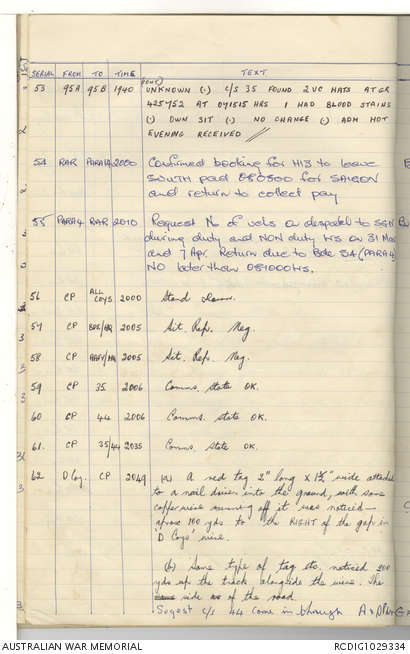 SERIAL FROM TO TIME TEXT
53 95A 95B 1940 (CONT) UNKNOWN (.) C/S 35 FOUND 2 VC HATS AT GR
425752 AT 071515 HRS 1 HAD BLOOD STAINS
(.) OWN SIT (.) NO CHANGE (.) ADM HOT
EVENING RECEIVED //
54 RAR PARA14 2000 Confirmed booking for H13 to leave
SOUTH pad 080800 for SAIGON
and return to collect pay
55 PARA4 RAR 2010 Request No of vehs on despatch to SGN
during duty and NON duty hrs on 31 Mar
and 7 Apr. Return due to Bde S4 (PARA4)
NO later than 081000 Hs.
56 CP ALL COYS 2000 Stand Down.
57 CP BDE/HQ 2005 Sit. Rep. Neg.
58 CP 2005 Sit. Rep. Neg.
59 CP 35 2006 Comms. State OK.
60 CP 44 2006 Comms. State OK.
61. CP 35/44 2035 Comms. State OK.
62 D Coy. CP 2049 (a) A red tag 2" long x 1½" wide attached
to a nail driven into the ground, with some
copper wire running off it was noticed —
aprox 100 yds to the RIGHT of the gap in
D Coys' wire.
(b) Some type of tag etc. noticed 200
yds up the track alongside the wire. The
side of the road
Sugest C/S 44 come in through
AUSTRALIAN WAR MEMORIAL RCDIG1029334